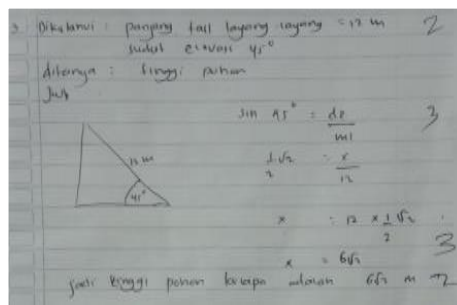 3 Diketahui : panjang tali layang layang = 12 m 2
sudut elevasi 45°
ditanya : tinggi pohon
Jwb
sin 45° = de / mi 3
1/2 √2 = x / 12
12 m
45°
x = 12 x 1/2 √2
x = 6√2 3
jadi tinggi pohon kelapa adalah 6√2 m 2